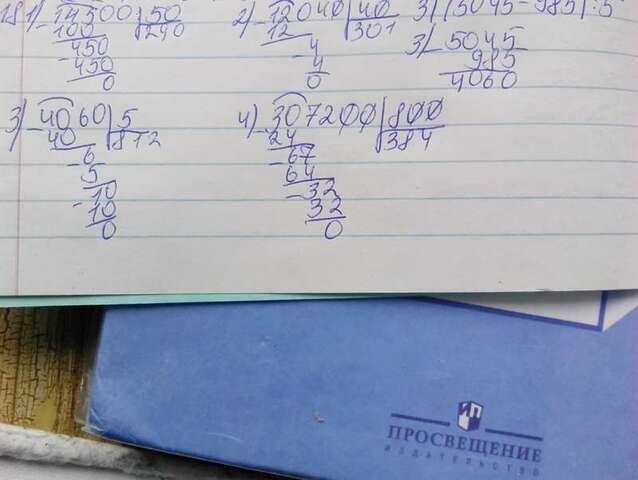 2) 12040 | 40 3) (5045 - 985) : 5
100 240 12 301 3) 5045
- 450 - 4 985
450 4 4060
0 0
3) - 4060 | 5 4) - 307200 | 800
40 812 24 384
- 6 - 67
5 64
- 10 - 32
10 32
0 0
ПРОСВЕЩЕНИЕ
ИЗДАТЕЛЬСТВО